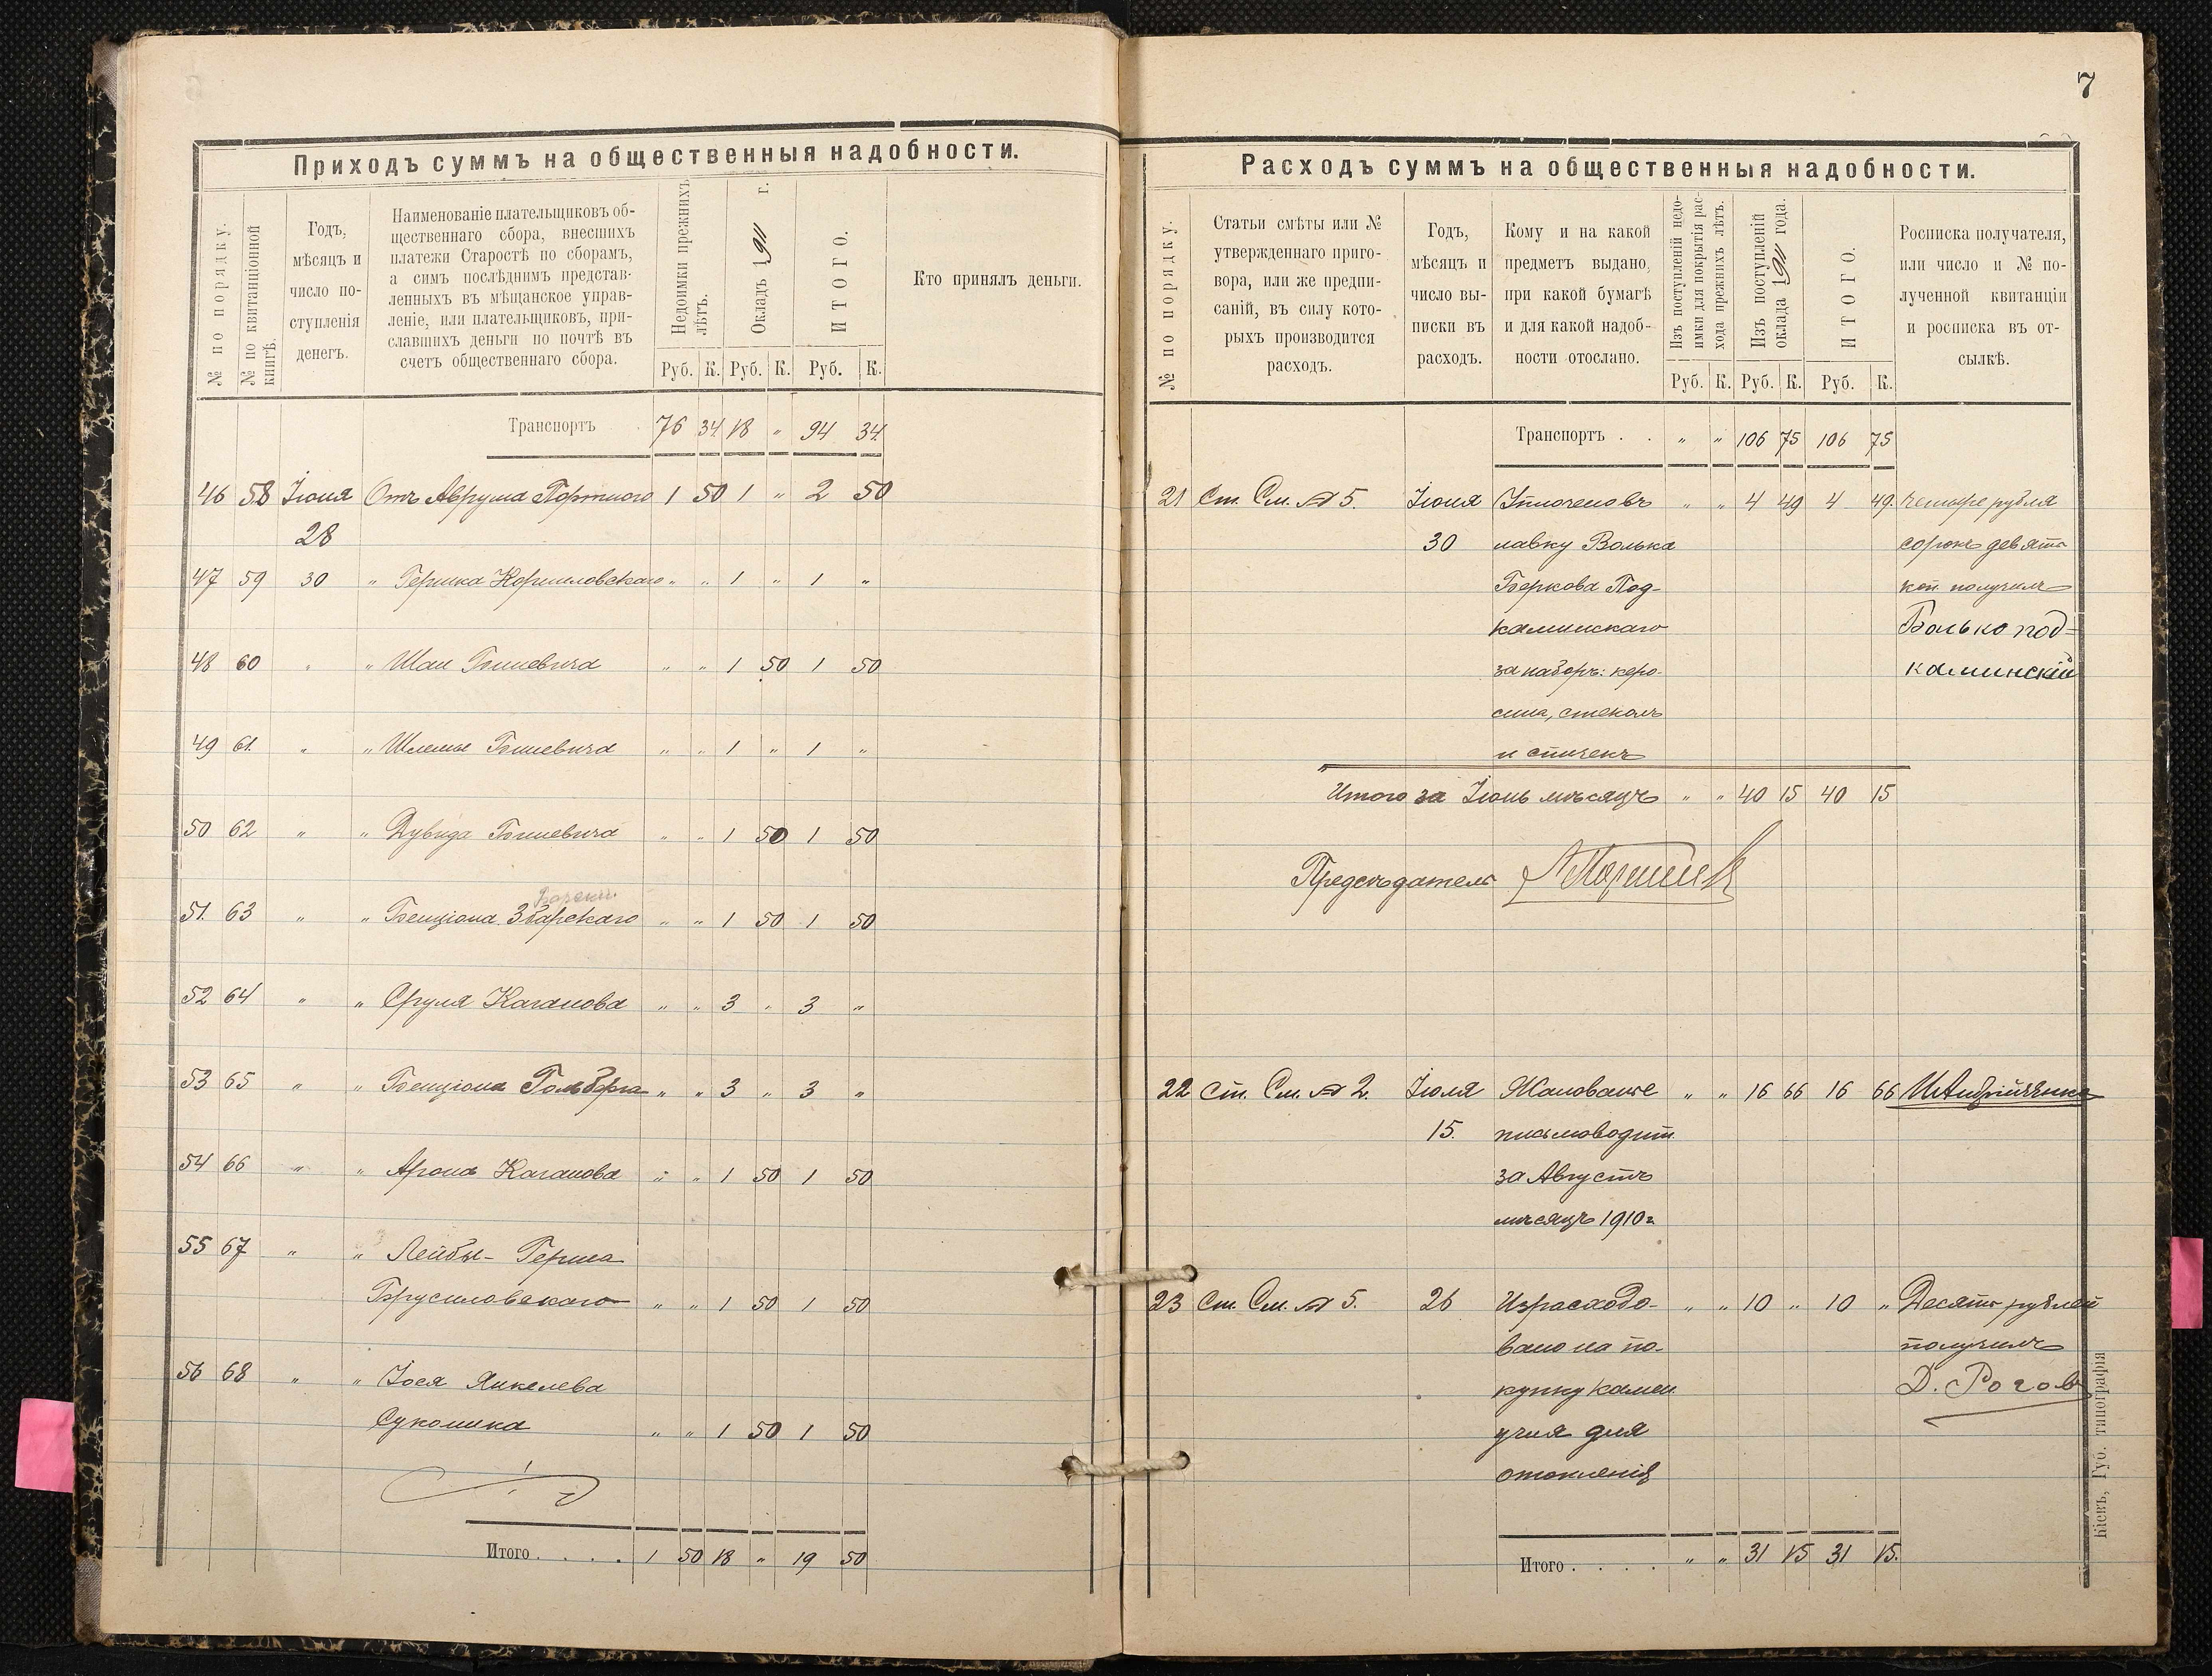 7
Приходъ суммъ на общественныя надобности.
№ по порядку.
№ по квитанціонной книгѣ.
Годъ, мѣсяцъ и число поступленія денегъ.
Наименованіе плательщиковъ об-
щественнаго сбора, внесшихъ
платежи Старостѣ по сборамъ,
а симъ послѣднимъ представ-
ленныхъ въ мѣщанское управ-
леніе, или плательщиковъ, при-
славшихъ деньги по почтѣ въ
счетъ общественнаго сбора.
Недоимки прежнихъ лѣтъ.
Окладъ 1911 г.
ИТОГО.
Кто принялъ деньги.
Руб. К. Руб. К. Руб. К.
Транспортъ 76 34 18 " 94 34
46 58 Іюня Отъ Аврума Портного 1 50 1 " 2 50
28
47 59 30 " Гершка Корниловскаго " " 1 " 1 "
48 60 " " Шаи Гниевича " " 1 50 1 50
49 61. " " Шлемы " " 1 " 1 "
50 62 " " Дувида " " 1 50 1 50
51. 63 " " Бенціона Збарскаго " " 1 50 1 50
52 64 " " Сруля Каганова " " 3 " 3 "
53 65 " " Бенціона Гольберга " " 3 " 3 "
54 66 " " Арона Каганова " " 1 50 1 50
55 67 " " Лейбы-Герша
Брусиловскаго " " 1 50 1 50
56 68 " " Іося Янкелева
Суконика " " 1 50 1 50
Итого . . . . 1 50 18 " 19 50
Расходъ суммъ на общественныя надобности.
№ по порядку.
Статьи смѣты или №
утвержденнаго приго-
вора, или же предпи-
саній, въ силу кото-
рыхъ производится
расходъ.
Годъ, мѣсяцъ и число выписки въ расходъ.
Кому и на какой
предметъ выдано,
при какой бумагѣ
и для какой надоб-
ности отослано.
Изъ поступленій недо-
имки для покрытія рас-
хода прежнихъ лѣтъ.
Изъ поступленій
оклада 1911 года.
ИТОГО.
Росписка получателя,
или число и № по-
лученной квитанціи
и росписка въ от-
сылкѣ.
Руб. К. Руб. К. Руб. К.
Транспортъ . . " " 106 75 106 75
21 Ст. См. № 5. Іюня Уплочено въ " " 4 49 4 49. четыре рубля
30 лавку Волька сорокъ девять
Беркова Под- коп. получилъ
каминскаго Волько под-
за наборъ: керо- каминскій
сина, стеколъ
и спичекъ
Итого за Іюнь мѣсяцъ " " 40 15 40 15
Предсѣдатель
22 Ст. См. № 2. Іюля Жалованіе " " 16 66 16 66
15. письмоводит.
за Августъ
мѣсяцъ 1910 г.
23 Ст. См. № 5. 26 Израсходо- " " 10 " 10 " Десять рублей
вано на по- получилъ
купку камен. Д. Рогов
угля для
отопленія
Итого . . . . " " 31 15 31 15.
Кіевъ, Губ. типографія